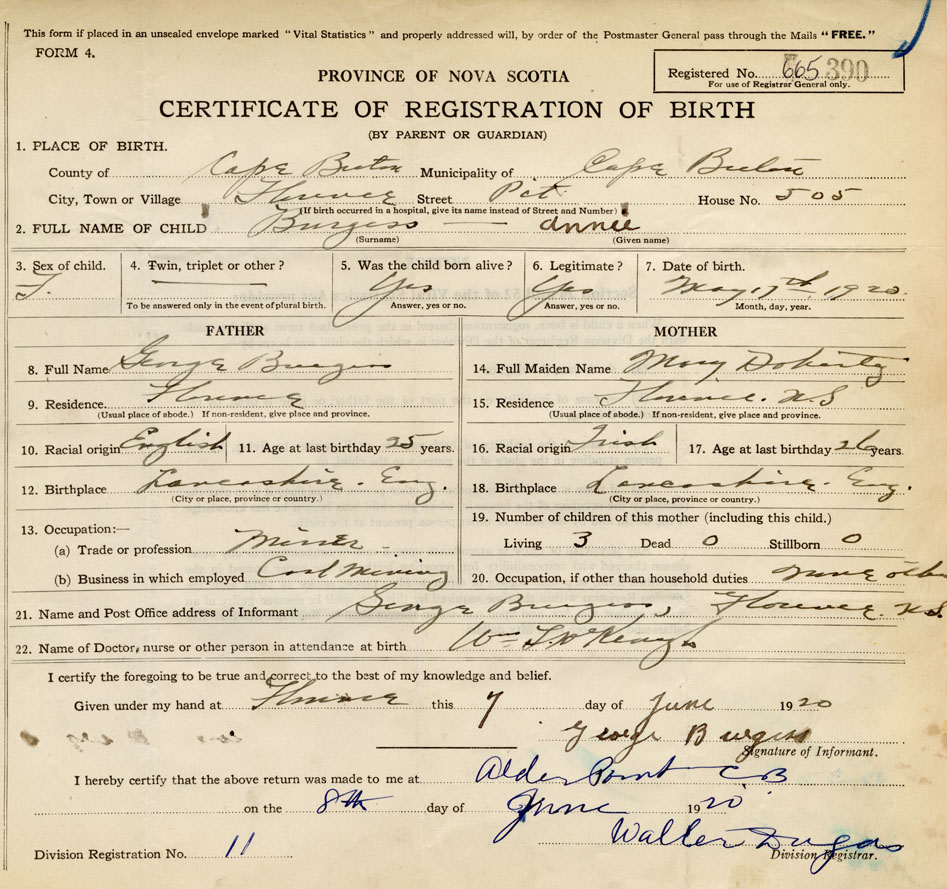 This form if placed in an unsealed envelope marked "Vital Statistics" and properly addressed will, by order of the Postmaster General pass through the Mails "FREE."
FORM 4.
Registered No. 665 390
For use of Registrar General only.
PROVINCE OF NOVA SCOTIA
CERTIFICATE OF REGISTRATION OF BIRTH
(BY PARENT OR GUARDIAN)
1. PLACE OF BIRTH.
County of Cape Breton Municipality of Cape Breton
City, Town or Village Florence Street Pit House No. 505
(If birth occurred in a hospital, give its name instead of Street and Number)
2. FULL NAME OF CHILD Burgess — Annie
(Surname) (Given name)
3. Sex of child. 4. Twin, triplet or other? 5. Was the child born alive? 6. Legitimate? 7. Date of birth.
F. — Yes Yes May 17th, 1920.
To be answered only in the event of plural birth. Answer, yes or no. Answer, yes or no. Month, day, year.
FATHER MOTHER
8. Full Name George Burgess 14. Full Maiden Name Mary Doherty
9. Residence Florence 15. Residence Florence. N.S
(Usual place of abode.) If non-resident, give place and province. (Usual place of abode.) If non-resident, give place and province.
10. Racial origin English 11. Age at last birthday 25 years. 16. Racial origin Irish 17. Age at last birthday 26 years.
12. Birthplace Lancashire. Eng. 18. Birthplace Lancashire. Eng.
(City or place, province or country.) (City or place, province or country.)
13. Occupation:— 19. Number of children of this mother (including this child.)
(a) Trade or profession Miner. Living 3 Dead 0 Stillborn 0
(b) Business in which employed Coal Mining 20. Occupation, if other than household duties None
21. Name and Post Office address of Informant George Burgess, Florence. N.S.
22. Name of Doctor, nurse or other person in attendance at birth Wm
I certify the foregoing to be true and correct to the best of my knowledge and belief.
Given under my hand at Florence this 7 day of June 1920
George Burgess
Signature of Informant.
I hereby certify that the above return was made to me at Alder Point C B
on the 8th day of June 1920
Walter Dugas
Division Registration No. 11 Division Registrar.